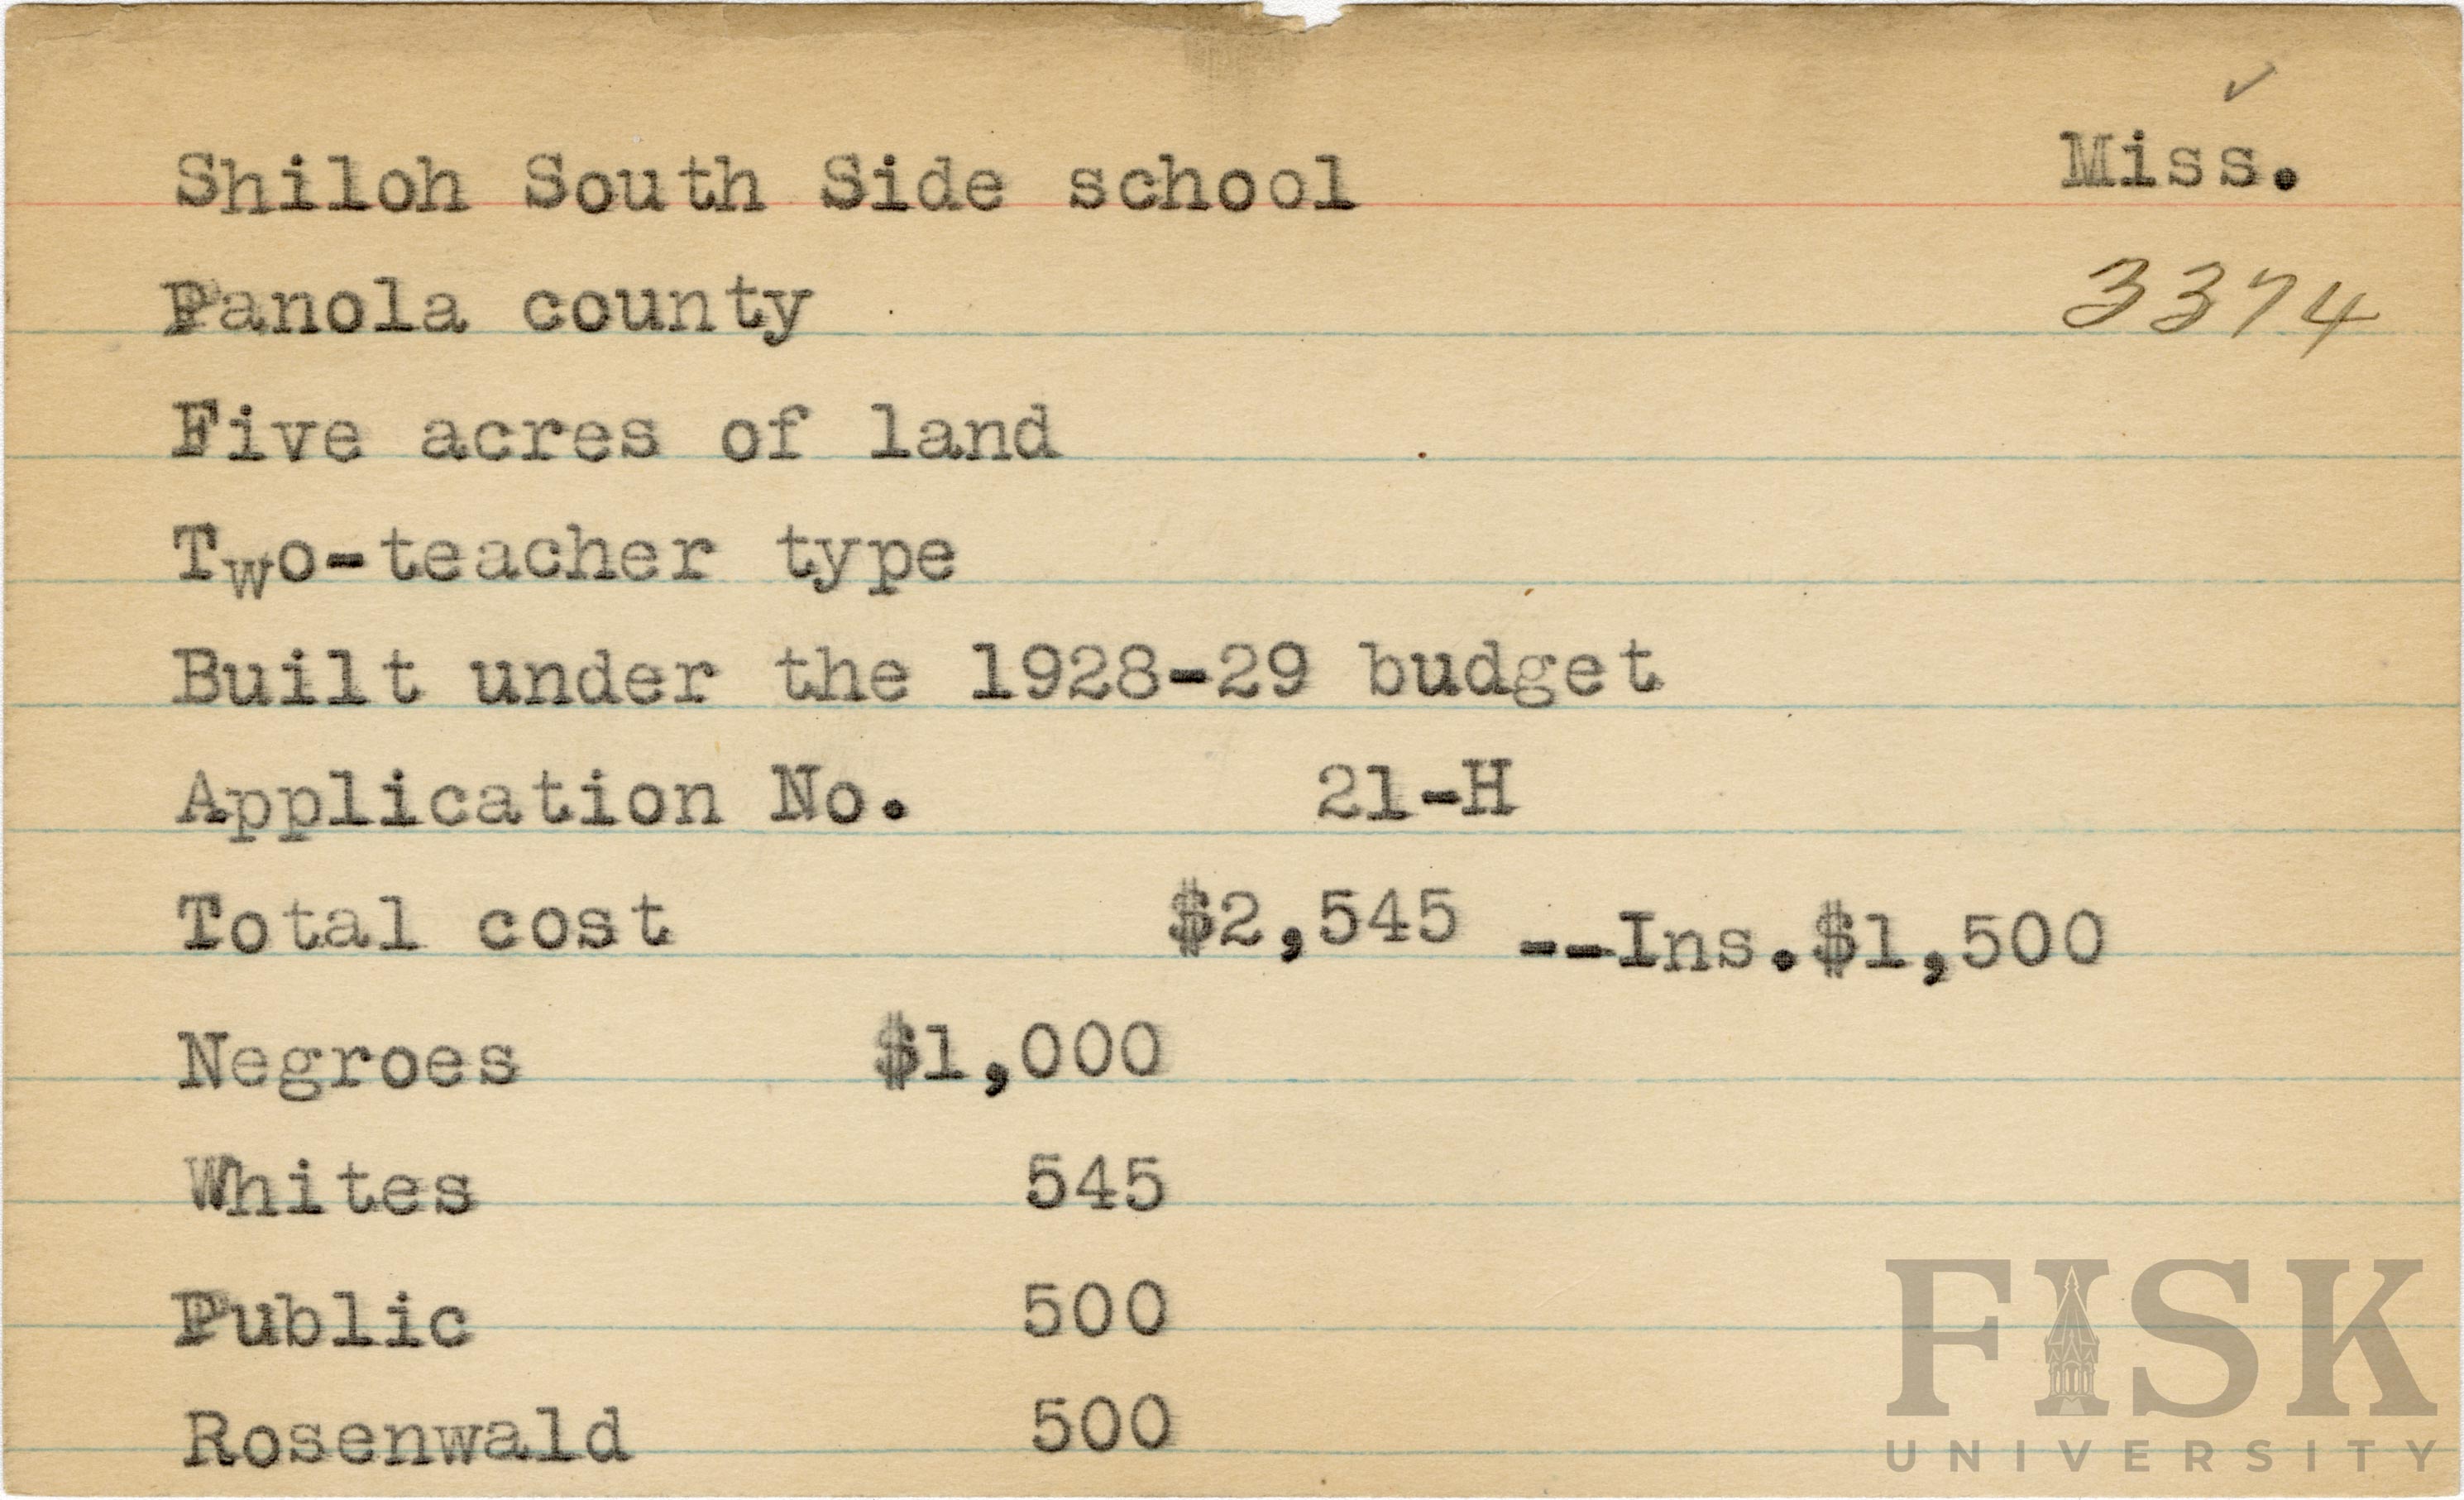 ✓
Shiloh South Side school Miss.
Panola county 3374
Five acres of land
Two-teacher type
Built under the 1928-29 budget
Application No. 21-H
Total cost $2,545 --Ins.$1,500
Negroes $1,000
Whites 545
Public 500
Rosenwald 500
FISK
UNIVERSITY